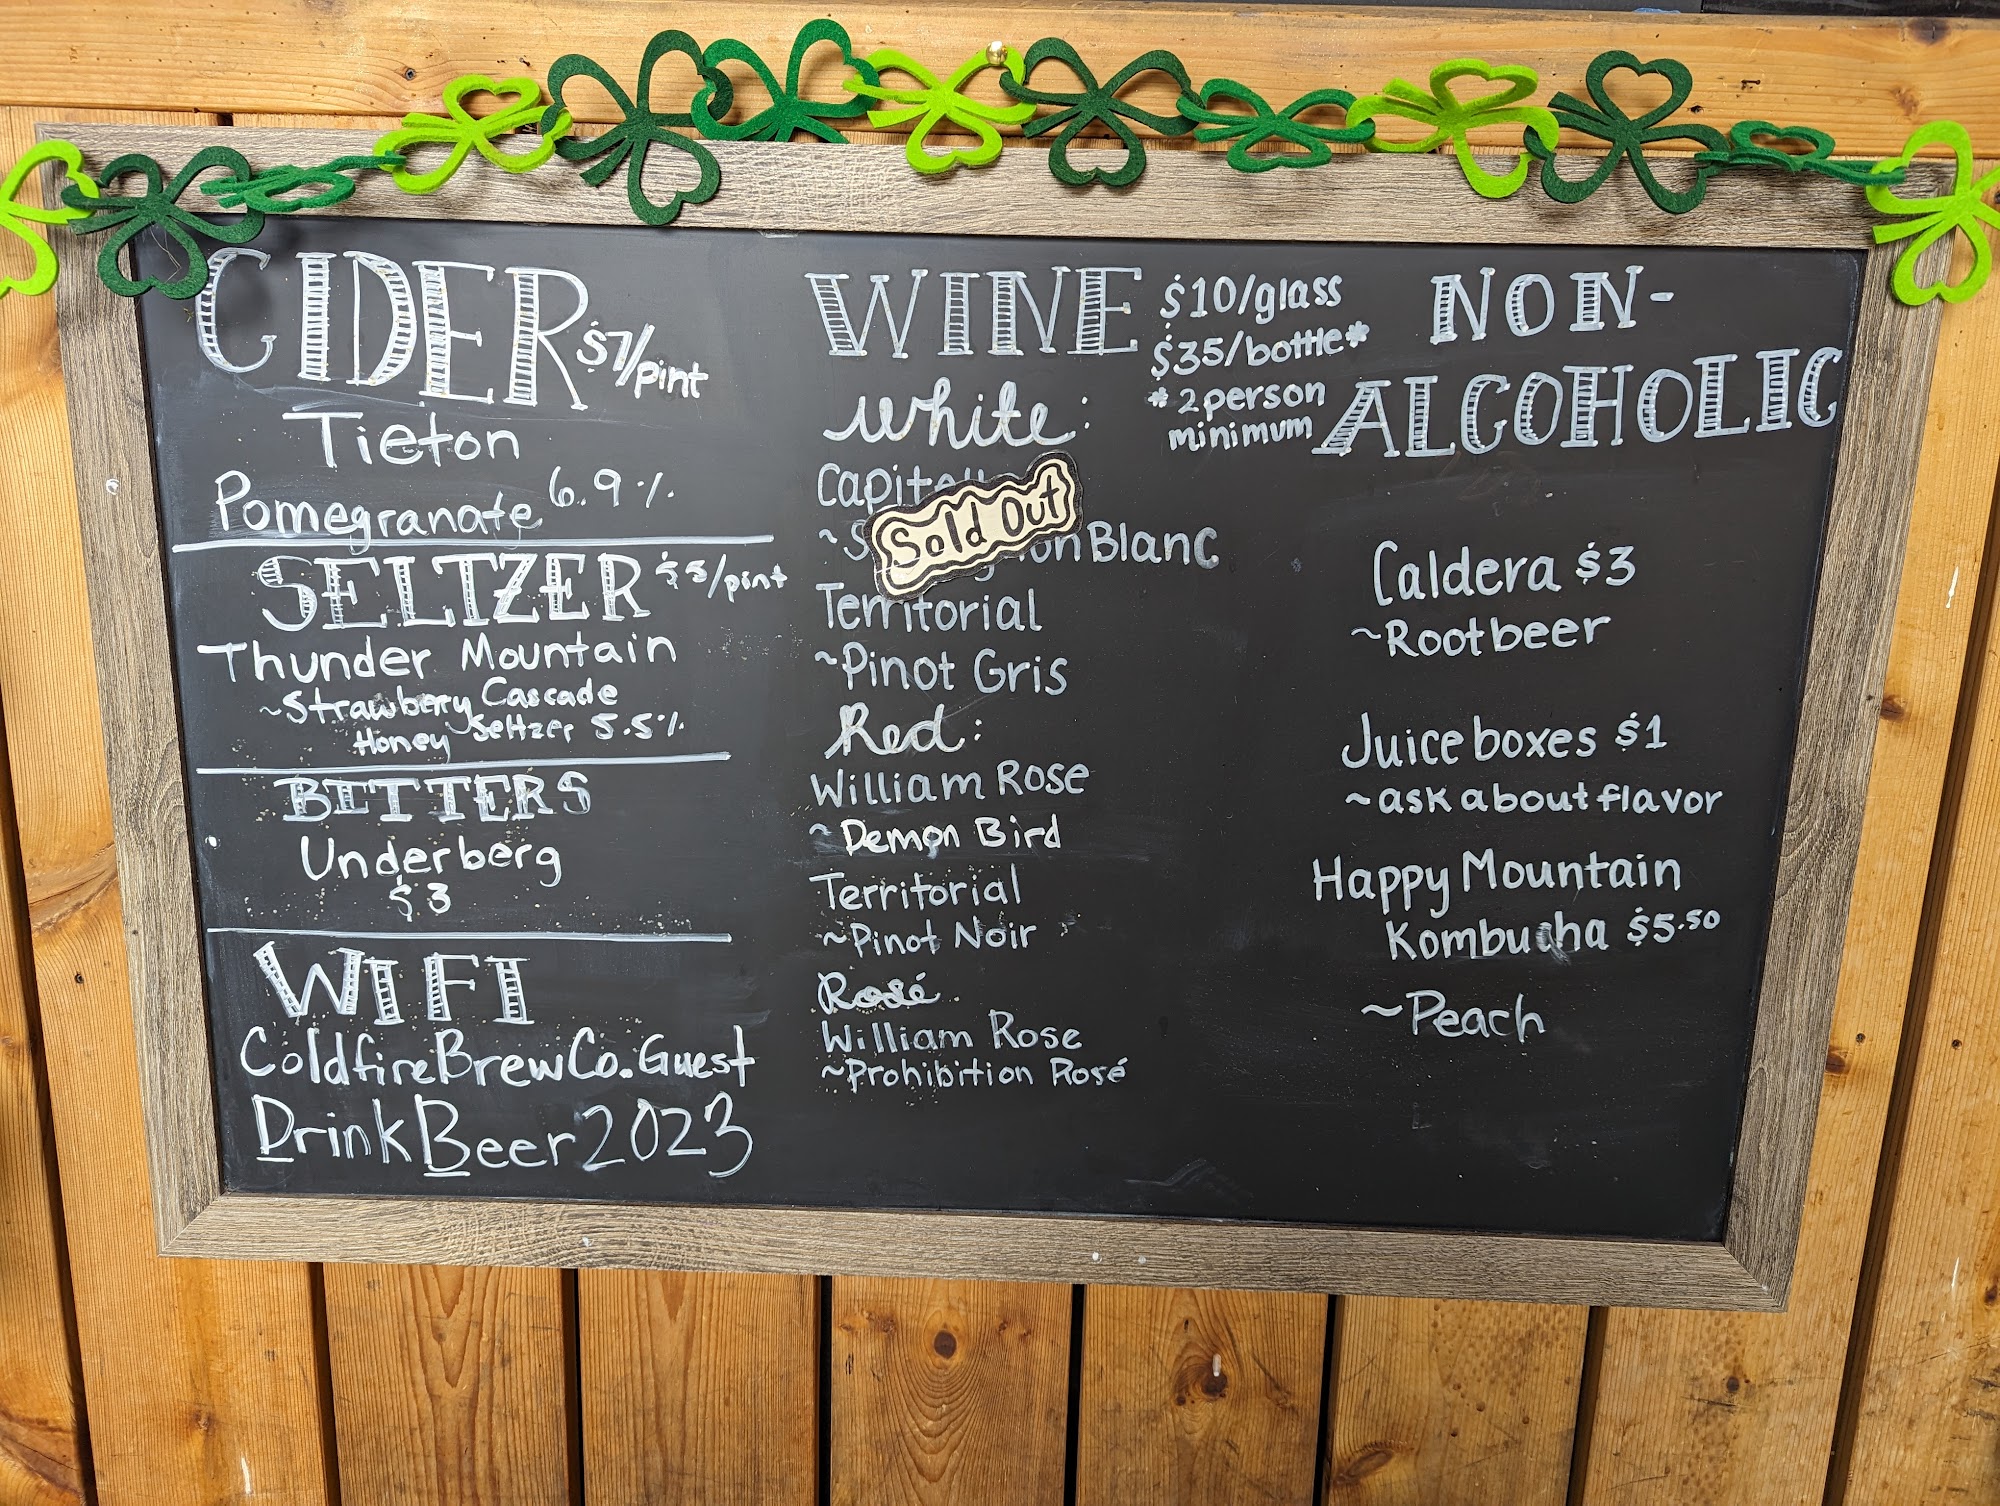 CIDER $7/pint
Tieton
Pomegranate 6.9%
SELTZER $5/pint
Thunder Mountain
~Strawberry Cascade
Honey Seltzer 5.5%
BITTERS
Underberg
$3
WIFI
ColdfireBrewCo.Guest
DrinkBeer2023
WINE
$10/glass
$35/bottle*
*2 person
minimum
White:
Sold Out
Blanc
Territorial
~Pinot Gris
Red:
William Rose
~Demon Bird
Territorial
~Pinot Noir
Rosé
William Rose
~Prohibition Rosé
NON-
ALCOHOLIC
Caldera $3
~Rootbeer
Juice boxes $1
~ask about flavor
Happy Mountain
Kombucha $5.50
~Peach